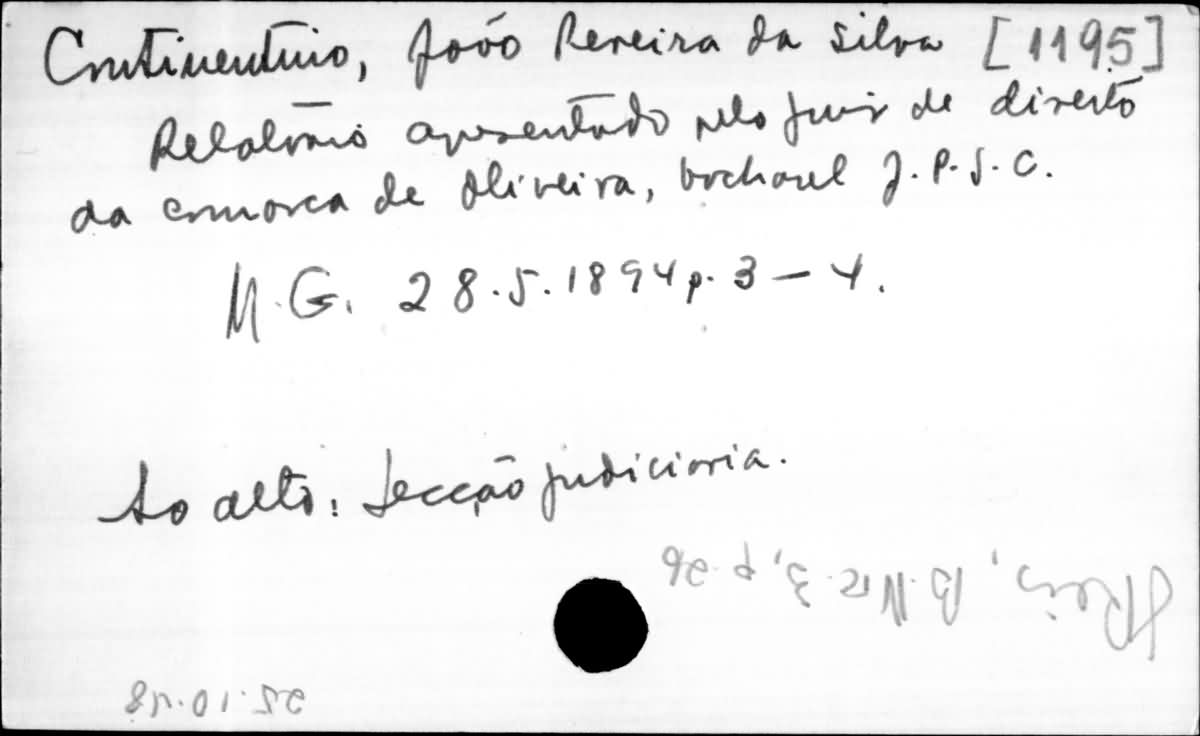 Continentino, João Pereira da Silva [1195]
Relatório apresentado pelo juiz de direito
da comarca de Oliveira, bacharel J.P.S.C.
M.G. 28.5.1894 p. 3-4.
Ao alto: Secção judiciaria.
Reis, B.
3, p. 26